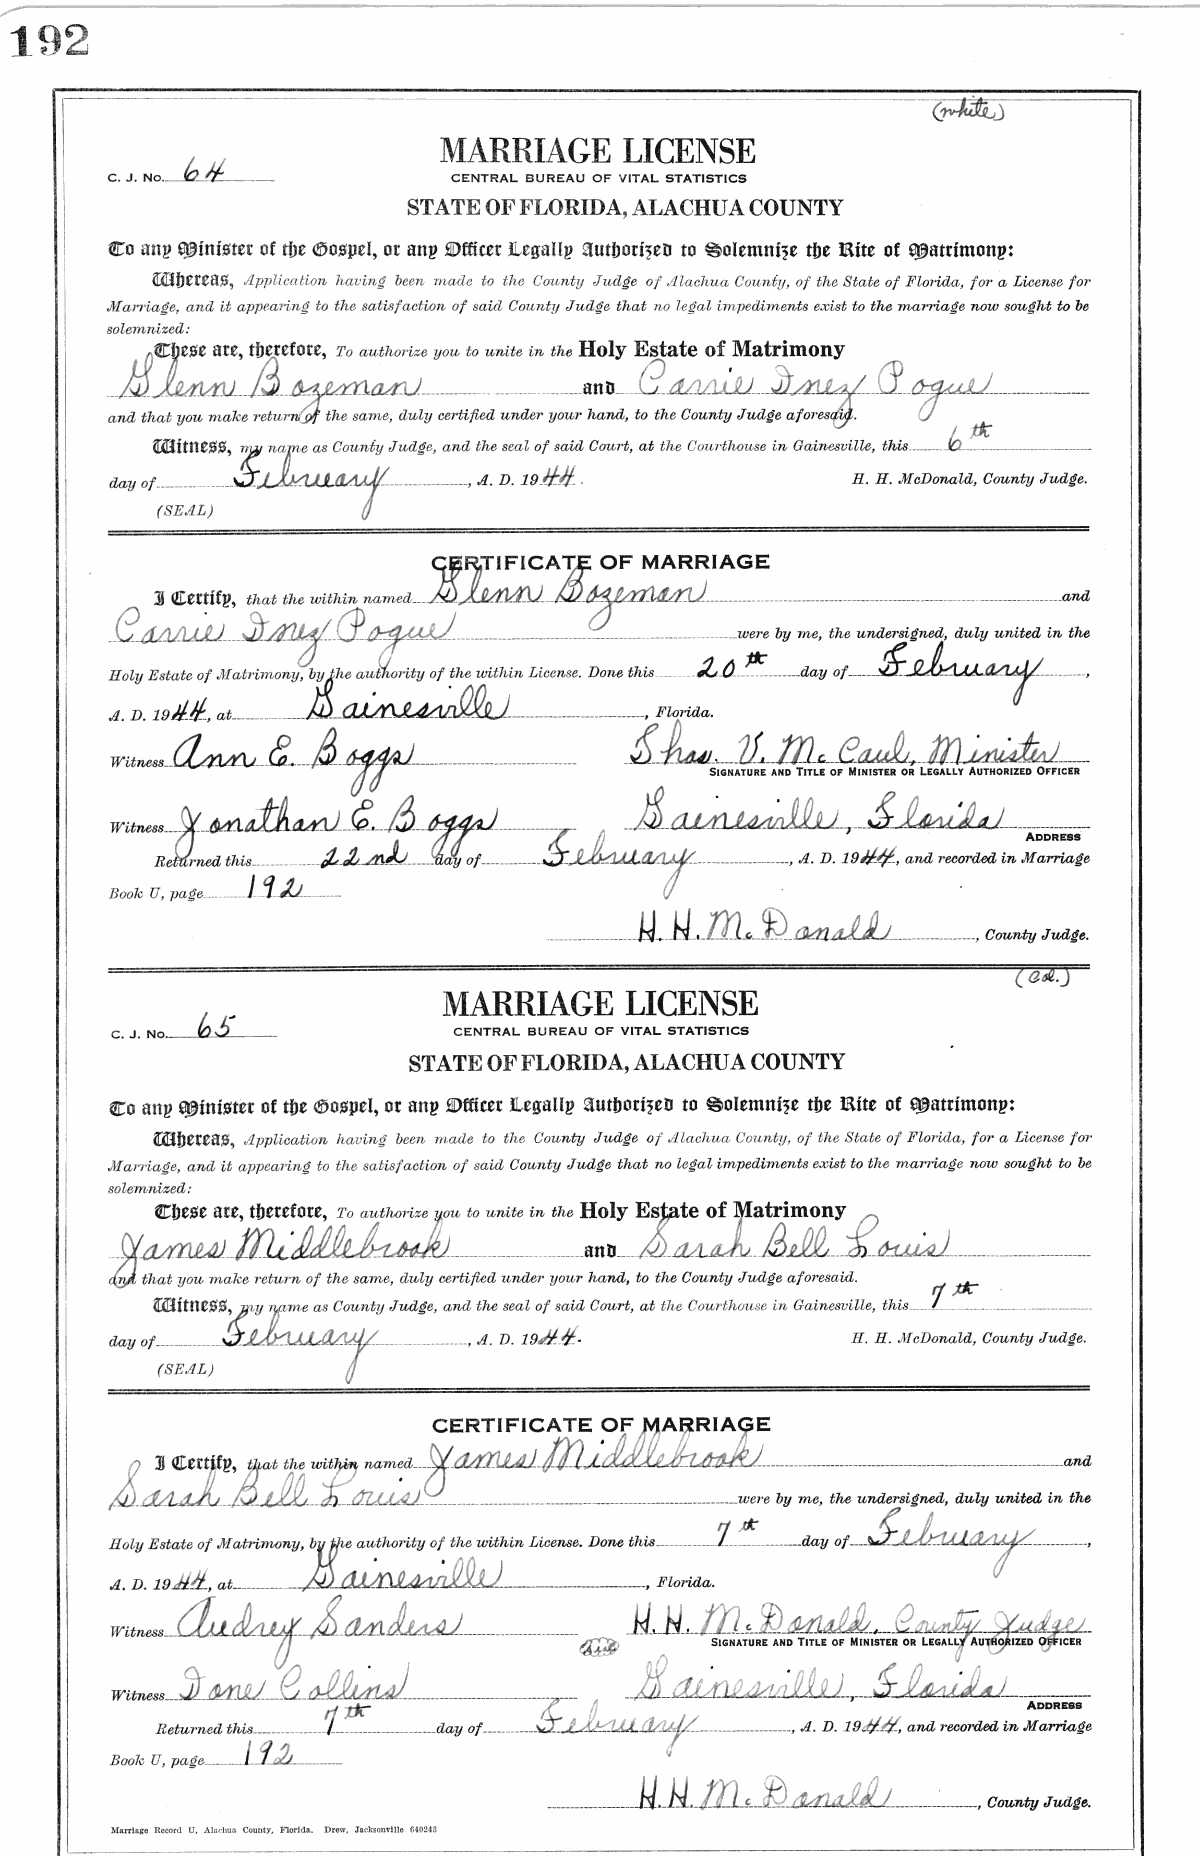 192
(white)
MARRIAGE LICENSE
C. J. No. 64
CENTRAL BUREAU OF VITAL STATISTICS
STATE OF FLORIDA, ALACHUA COUNTY
To any Minister of the Gospel, or any Officer Legally Authorized to Solemnize the Rite of Matrimony:
Whereas, Application having been made to the County Judge of Alachua County, of the State of Florida, for a License for
Marriage, and it appearing to the satisfaction of said County Judge that no legal impediments exist to the marriage now sought to be
solemnized:
These are, therefore, To authorize you to unite in the Holy Estate of Matrimony
Glenn Bozeman and Carrie Inez Pogue
and that you make return of the same, duly certified under your hand, to the County Judge aforesaid.
Witness, my name as County Judge, and the seal of said Court, at the Courthouse in Gainesville, this 6th
day of February, A. D. 1944. H. H. McDonald, County Judge.
(SEAL)
CERTIFICATE OF MARRIAGE
I Certify, that the within named Glenn Bozeman and
Carrie Inez Pogue were by me, the undersigned, duly united in the
Holy Estate of Matrimony, by the authority of the within License. Done this 20th day of February,
A. D. 1944, at Gainesville, Florida.
Witness Ann E. Boggs Thos. V. McCaul, Minister
SIGNATURE AND TITLE OF MINISTER OR LEGALLY AUTHORIZED OFFICER
Witness Jonathan E. Boggs Gainesville, Florida
ADDRESS
Returned this 22nd day of February, A. D. 1944, and recorded in Marriage
Book U, page 192
H. H. McDonald, County Judge.
(Col.)
MARRIAGE LICENSE
C. J. No. 65
CENTRAL BUREAU OF VITAL STATISTICS
STATE OF FLORIDA, ALACHUA COUNTY
To any Minister of the Gospel, or any Officer Legally Authorized to Solemnize the Rite of Matrimony:
Whereas, Application having been made to the County Judge of Alachua County, of the State of Florida, for a License for
Marriage, and it appearing to the satisfaction of said County Judge that no legal impediments exist to the marriage now sought to be
solemnized:
These are, therefore, To authorize you to unite in the Holy Estate of Matrimony
James Middlebrook and Sarah Bell Louis
and that you make return of the same, duly certified under your hand, to the County Judge aforesaid.
Witness, my name as County Judge, and the seal of said Court, at the Courthouse in Gainesville, this 7th
day of February, A. D. 1944. H. H. McDonald, County Judge.
(SEAL)
CERTIFICATE OF MARRIAGE
I Certify, that the within named James Middlebrook and
Sarah Bell Louis were by me, the undersigned, duly united in the
Holy Estate of Matrimony, by the authority of the within License. Done this 7th day of February,
A. D. 1944, at Gainesville, Florida.
Witness Audrey Sanders H. H. McDonald, County Judge
SIGNATURE AND TITLE OF MINISTER OR LEGALLY AUTHORIZED OFFICER
Witness Done Collins Gainesville, Florida
ADDRESS
Returned this 7th day of February, A. D. 1944, and recorded in Marriage
Book U, page 192
H. H. McDonald, County Judge.
Marriage Record U, Alachua County, Florida. Drew, Jacksonville 640243